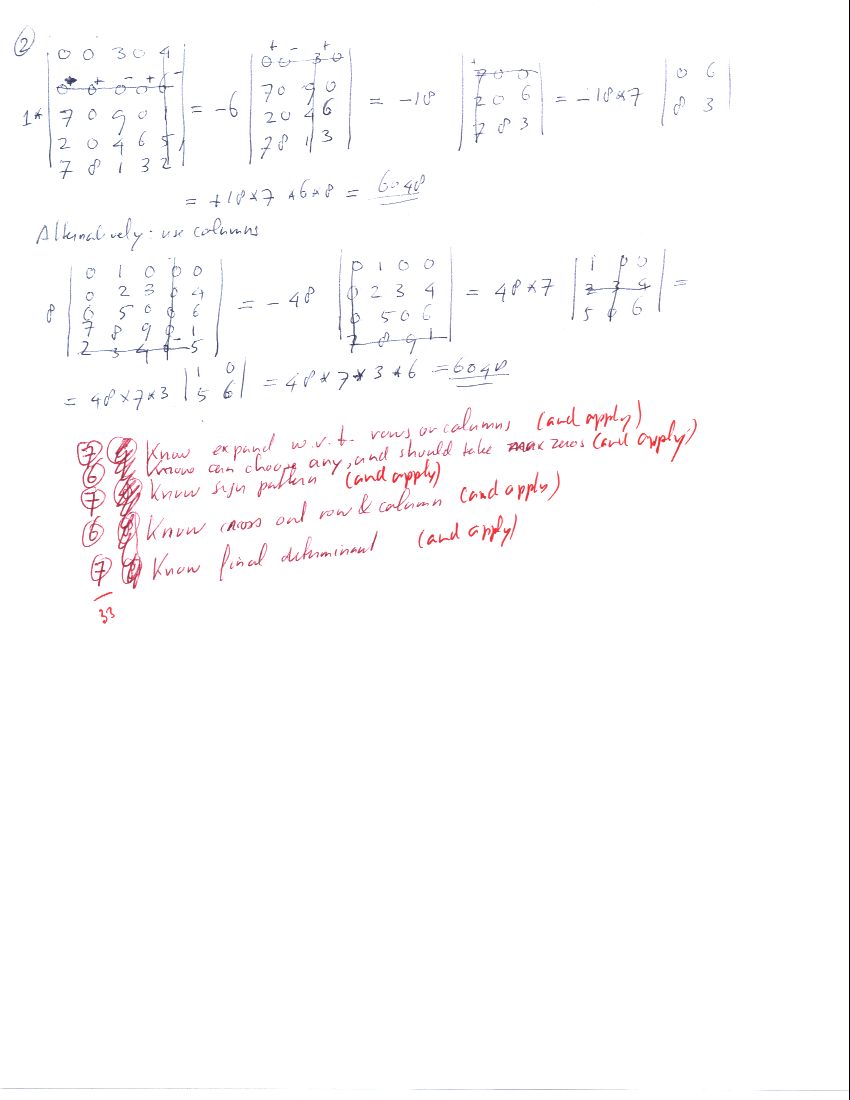 2
0 0 3 0 4
+ - + - +
0 0 0 0 6 - + - + -
1* 7 0 9 0 1 = -6 0 0 3 0 7 0 9 0 2 0 4 6 7 8 1 3 = -18 7 0 0 2 0 6 7 8 3 = -18*7 0 6 8 3
2 0 4 6 5
7 8 1 3 2
= +18*7*6*8 = 6048
Alternatively: use columns
8 0 1 0 0 0 = -48 0 1 0 0 = 48*7 1 0 0 =
0 2 3 0 4 0 2 3 4 2 3 4
6 5 0 0 6 0 5 0 6 5 0 6
7 8 9 0 1 7 8 9 1
2 3 4 6 5
= 48*7*3 1 0 5 6 = 48*7*3*6 = 6048
7 Know expand w.r.t. rows or columns (and apply)
6 Know can choose any, and should take max zeros (and apply)
7 Know sign pattern (and apply)
6 Know cross out row & column (and apply)
7 Know final determinant (and apply)
33